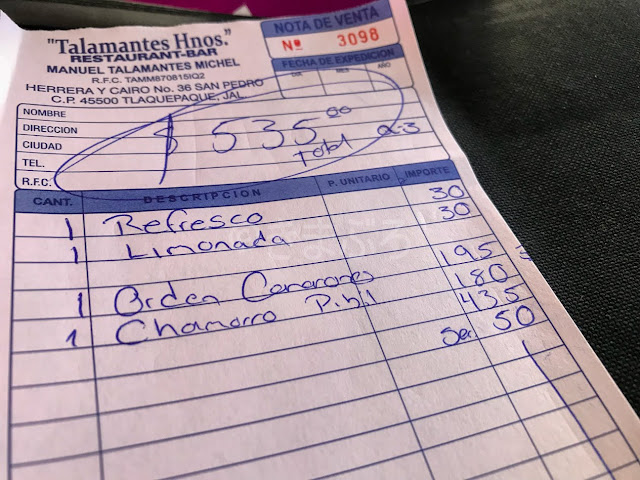 "Talamantes Hnos."
RESTAURANT-BAR
MANUEL TALAMANTES MICHEL
R.F.C. TAMM870815IQ2
HERRERA Y CAIRO No. 36 SAN PEDRO
C.P. 45500 TLAQUEPAQUE, JAL.
NOTA DE VENTA
Nº 3098
FECHA DE EXPEDICION
DIA MES AÑO
NOMBRE
DIRECCION
CIUDAD
TEL.
R.F.C.
$ 535.00
Total
CANT. DESCRIPCION P. UNITARIO IMPORTE
1 Refresco 30
1 Limonada 30
1 Orden Camarones 195
1 Chamorro 180
435
50